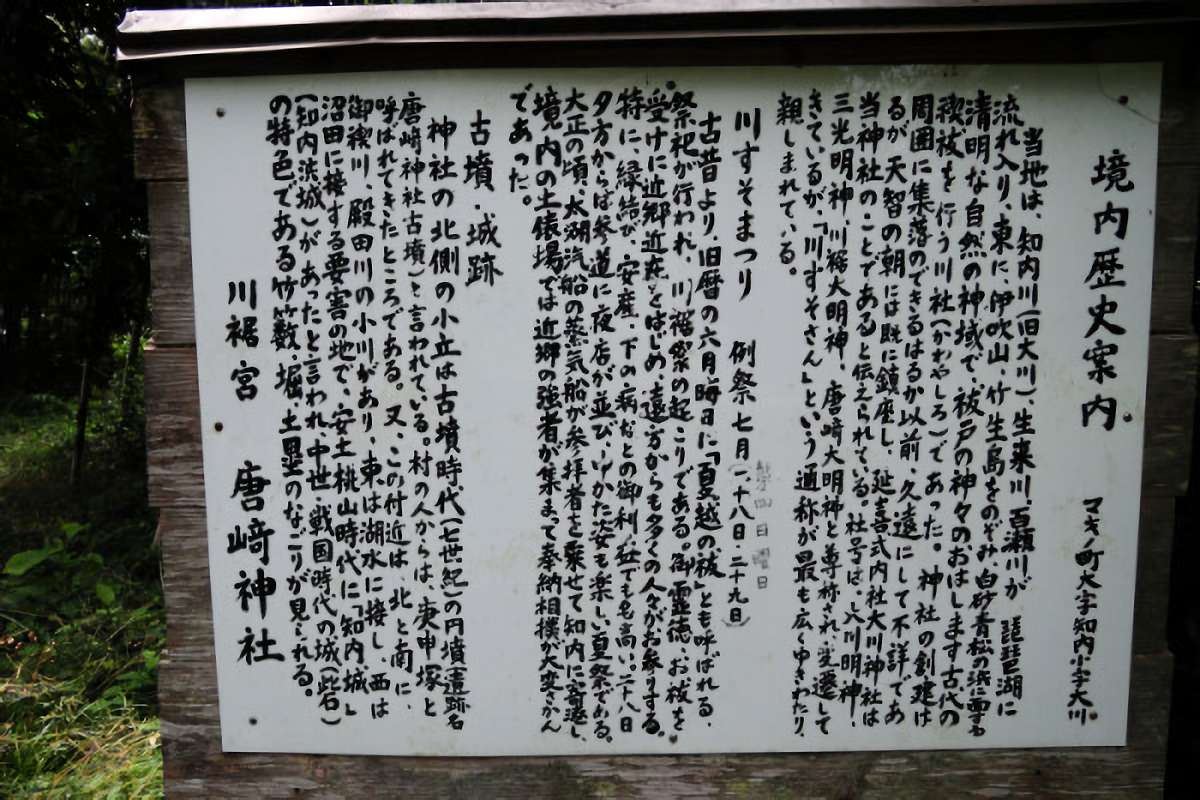 境内歴史案内　マキノ町大字知内小字大川
当地は、知内川(旧大川)、生来川、百瀬川が琵琶湖に
流れ入り、東に、伊吹山、竹生島をのぞみ白砂青松の浜に面する
清明な自然の神域で、祓戸の神々のおはします古代の
禊祓を行う川社(かわやしろ)であった。神社の創建は
周囲に集落のできるはるか以前、久遠にして不詳であ
るが天智の朝には既に鎮座し、延喜式内社大川神社は
当神社のことであると伝えられている。社号は、八川明神、
三光明神、川裾大明神、唐崎大明神と尊称され、変遷して
きているが、「川すそさん」という通称が最も広くゆきわたり、
親しまれている。
川すそまつり　例祭　七月(二十八日 二十九日)
第四日曜日
古昔より、旧暦の六月晦日に「夏越の祓」とも呼ばれる、
祭祀が行われ、川裾祭の起こりである。御霊徳、お祓を
受けに近郷近在をはじめ、遠方からも多くの人々がお参りする。
特に、縁結び、安産、下の病などの御利益でも名高い。二十八日
夕方からは参道に夜店が並び、ゆかた姿も楽しい夏祭である。
大正の頃、太湖汽船の蒸気船が参拝者を乗せて知内に寄港し、
境内の土俵場では近郷の強者が集まって奉納相撲が大変さかん
であった。
古墳・城跡
神社の北側の小丘は古墳時代(七世紀)の円墳(遺跡名
唐崎神社古墳)と言われている。村の人からは、庚申塚と
呼ばれてきたところである。又、この付近は、北と南に、
御禊川、殿田川の小川があり、東は湖水に接し、西は
沼田に接する要害の地で、安土桃山時代に「知内城」
(知内浜城)があったと言われ、中世・戦国時代の城(砦)
の特色である竹薮、堀、土塁のなごりが見られる。
川裾宮　唐﨑神社